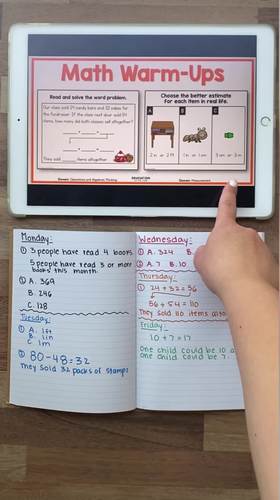 Math Warm-Ups
Read and solve the word problem.
Our class sold 24 candy bars and 32 cakes for
the fundraiser. If the class next door sold 54
items, how many did both classes sell altogether?
They sold items altogether.
Choose the better estimate
for each item in real life.
A
B
C
2 in. or 2 ft.
1 in. or 1 cm
3 cm or 3 m
Domain: Operations and Algebraic Thinking
Domain: Measurement
Monday:
① 3 people have read 4 books
5 people have read 3 or more
books this month.
② A. 369
B. 246
C. 128
Tuesday:
① A. 1ft
B. 1in
C. 1m
② 80-48=32
They sold 32 packs of stamps
Wednesday:
① A. 324 B.
② A. 7 B. 10
Thursday:
① 24+32=56
56+54=110
They sold 110 items
Friday:
10+7=17
One child could be 10
one child could be 7.